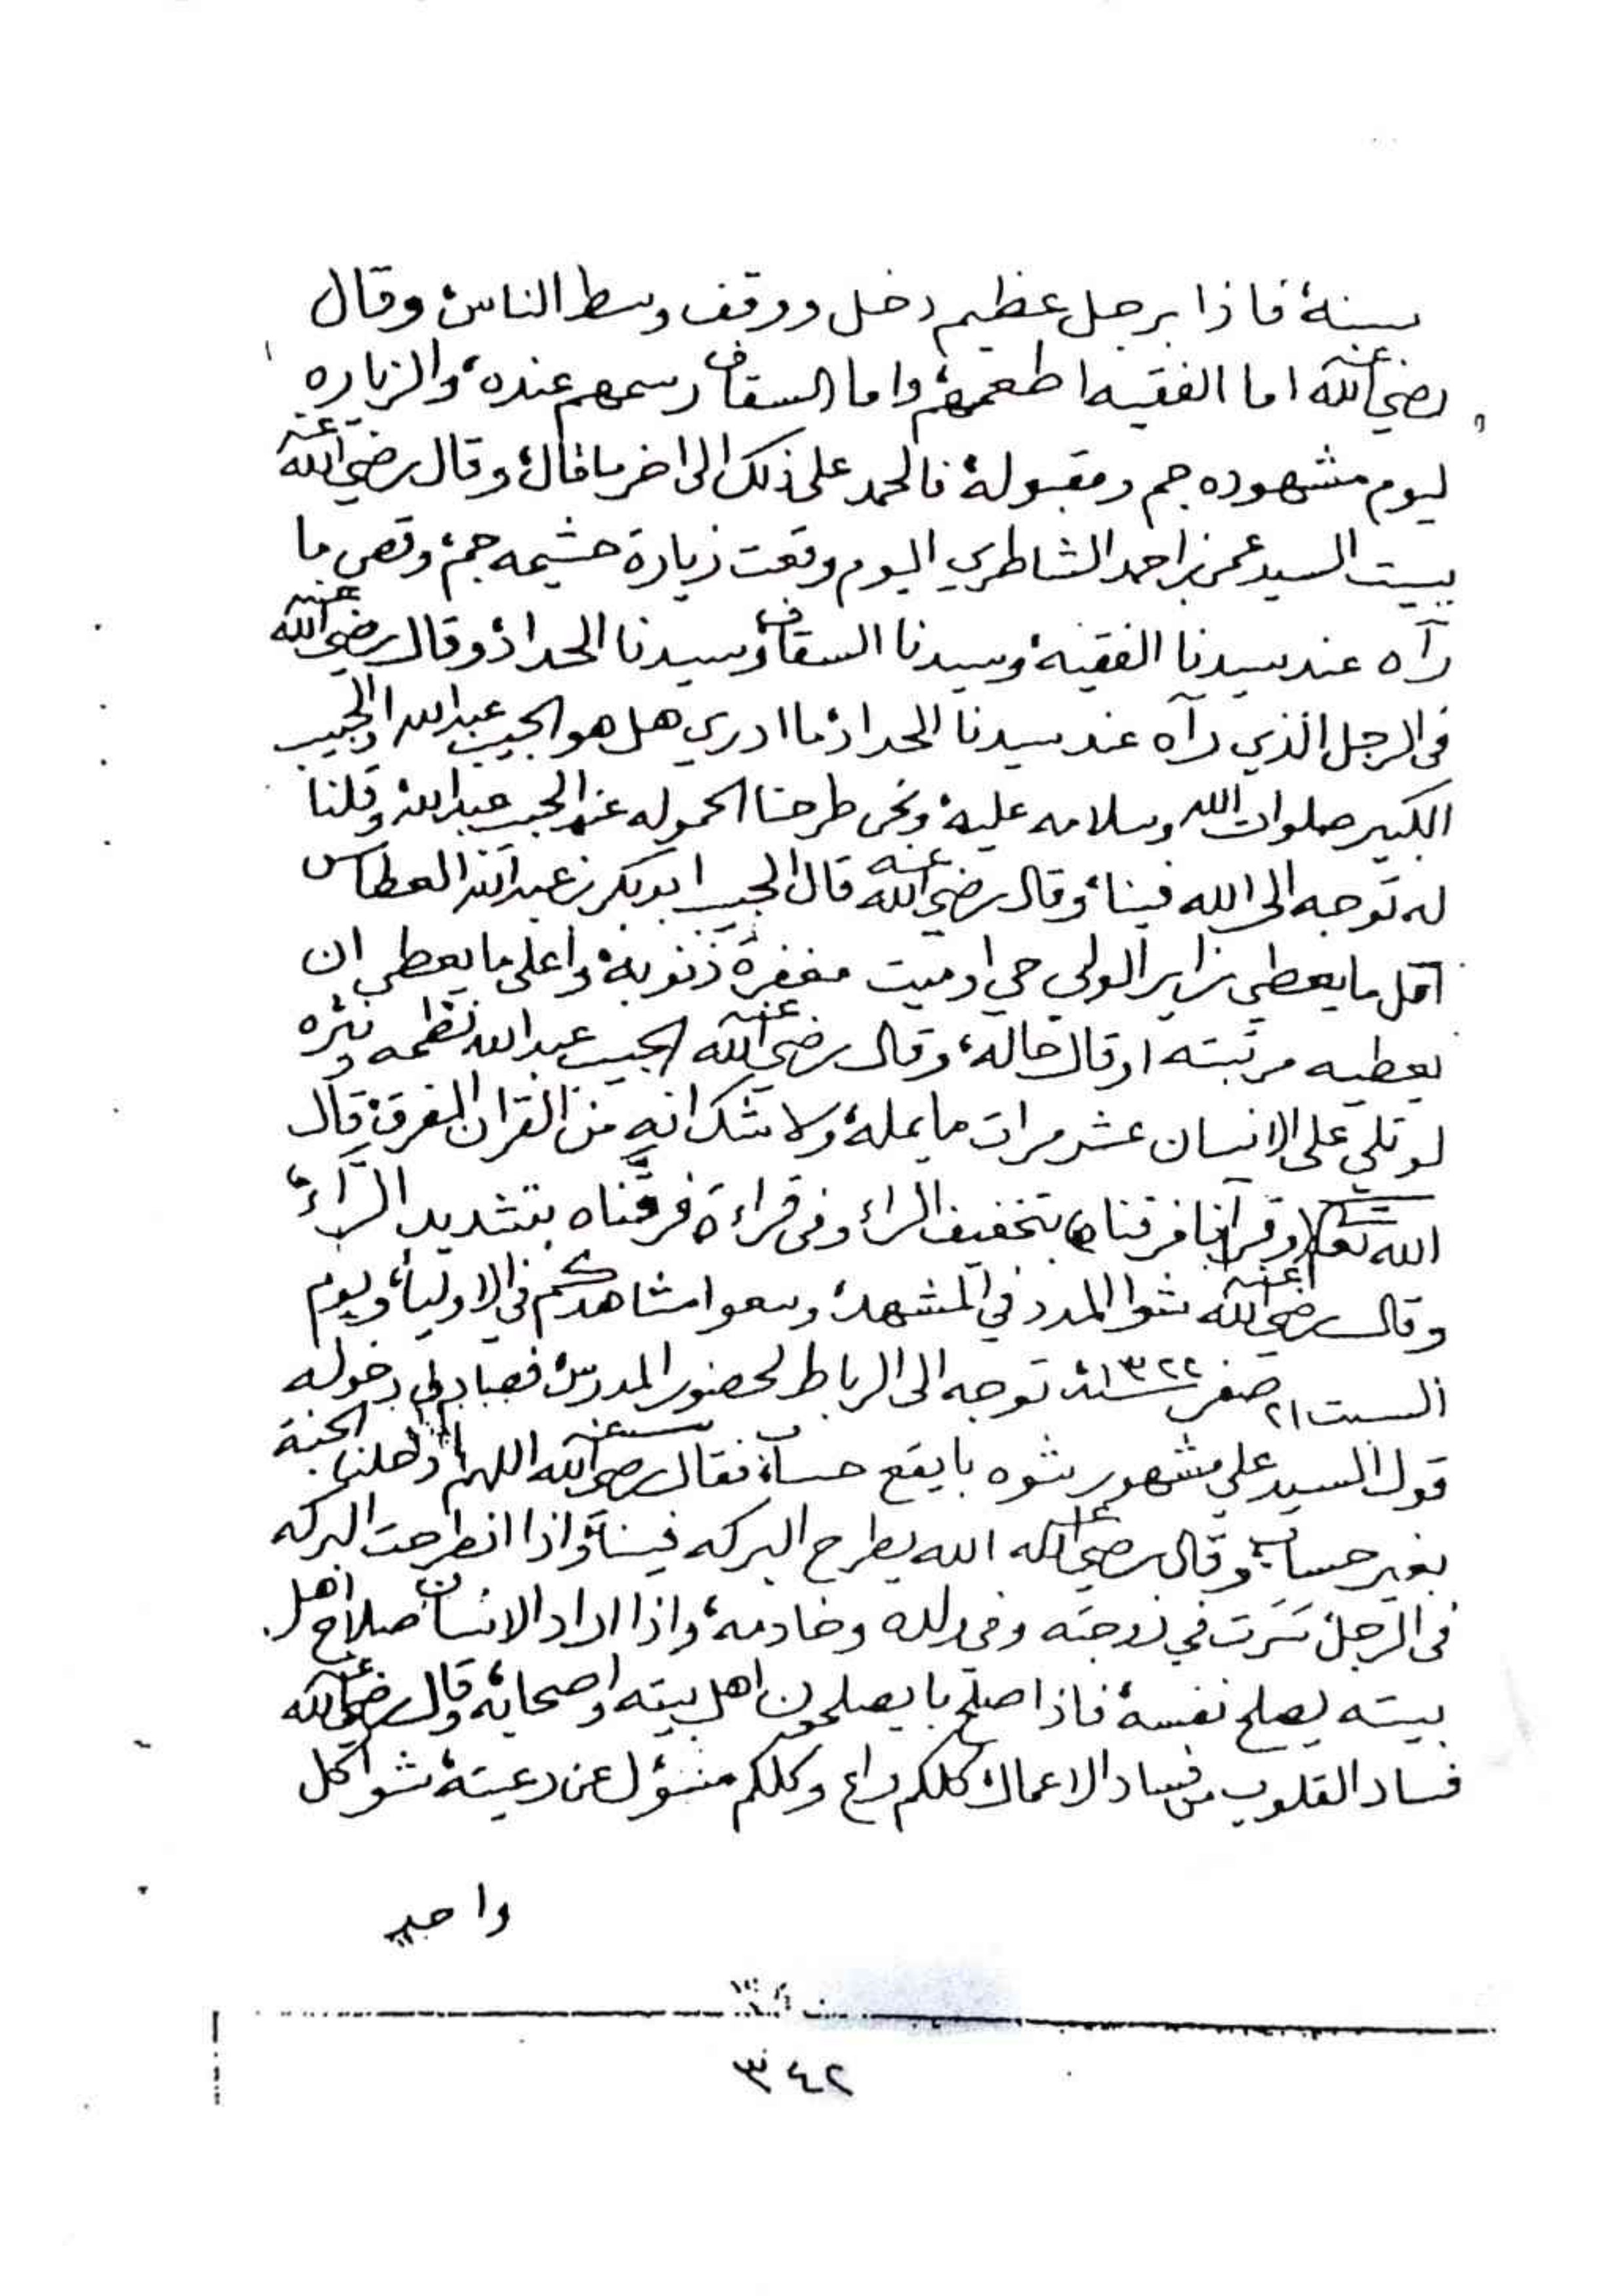 سنة، فاذا برجل عظيم دخل ووقف وسط الناس، وقال
رضي الله عنه اما الفقيه اطعمهم، واما السقاف رسمهم عنده، والزياره
ليوم مشهوده جم ومقبولة، فالحمد على ذلك الى اخر ما قال، وقال رضي الله عنه
ببيت السيد عمر بن احمد الشاطري اليوم وقعت زيارة حشيمه جم، وقص ما
رآه عند سيدنا الفقيه، وسيدنا السقاف، وسيدنا الحداد، وقال رضي الله عنه
في الرجل الذي رآه عند سيدنا الحداد، ما ادري هل هو الحبيب عبدالله او الحبيب
الكبير صلوات الله وسلامه عليه، ونحن طرحنا الحموله عند الحبيب عبدالله، وقلنا
له توجه الى الله فينا، وقال رضي الله عنه قال الحبيب ابوبكر بن عبدالله العطاس
اقل ما يعطي زاير الولي حي او ميت مغفرة ذنوبه، واعلى ما يعطى ان
يعطيه مرتبته او قال حاله، وقال رضي الله عنه الحبيب عبدالله نظمه ونثره
لو تلي على الانسان عشر مرات ما يمله، ولا شك انه من القران المفرق، قال
الله تعالى (وقرآنا فرقناه) بتخفيف الراء، وفي قراءة فرّقناه بتشديد الرّاء،
وقال رضي الله عنه شوا المدد في المشهد، وسعوا مشاهدكم في الاوليا، ويوم
السبت ٢١ صفر سنة ١٣٢٢ توجه الى الرباط لحضور المدرس، فصادف دخوله
قول السيد علي مشهور شوه بايقع حساب، فقال رضي الله عنه اللهم ادخلنا الجنة
بغير حساب، وقال رضي الله عنه الله يطرح البركه فينا، واذا انطرحت البركه
في الرجل، سَرَت في زوجته وفي ولده وخادمه، واذا اراد الانسان صلاح اهل
بيته يصلح نفسه، فاذا صلح بايصلحون اهل بيته واصحابه، وقال رضي الله عنه
فساد القلوب من فساد الاعمال، كلكم راع وكلكم مسؤل عن رعيته، شوا كل
واحد
٣٤٢